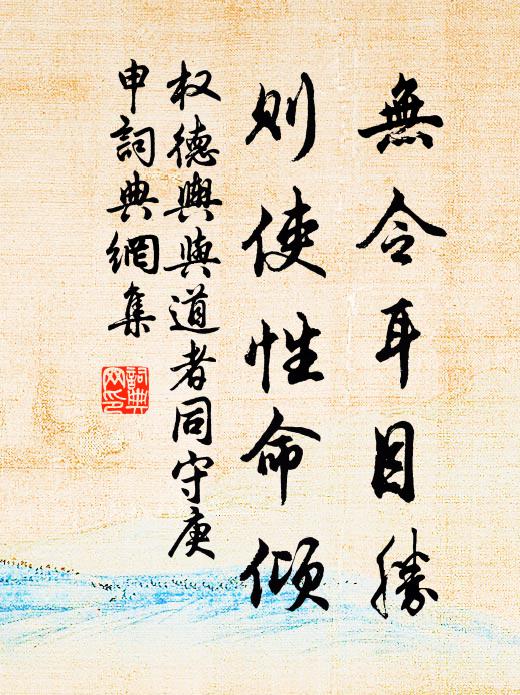 無令耳目勝
則使性命傾
权德輿與道者同守庚
申詞典網集
詞典网印